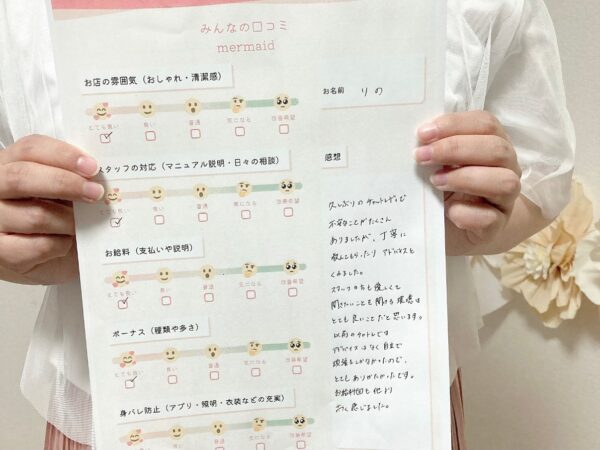 みんなの口コミ
mermaid
お店の雰囲気(おしゃれ・清潔感)
とても良い 良い 普通 気になる 改善希望
スタッフの対応(マニュアル説明・日々の相談)
とても良い 良い 普通 気になる 改善希望
お給料(支払いや説明)
とても良い 良い 普通 気になる 改善希望
ボーナス(種類や多さ)
とても良い 良い 普通 気になる 改善希望
身バレ防止(アプリ・照明・衣装などの充実)
とても良い 良い 普通 気になる 改善希望
お名前 りの
感想
久しぶりのチャットレディで
不安なことがたくさん
ありましたが、丁寧に
教えてもらったり アドバイスを
くれました。
スタッフの方も優しくて
聞きたいことも聞ける環境は
とても良いことだと思います。
以前のチャトレでは
アドバイスはなく自分で
頑張るしかなかったので、
とてもありがたかったです。
お給料面も他より
高く感じました。